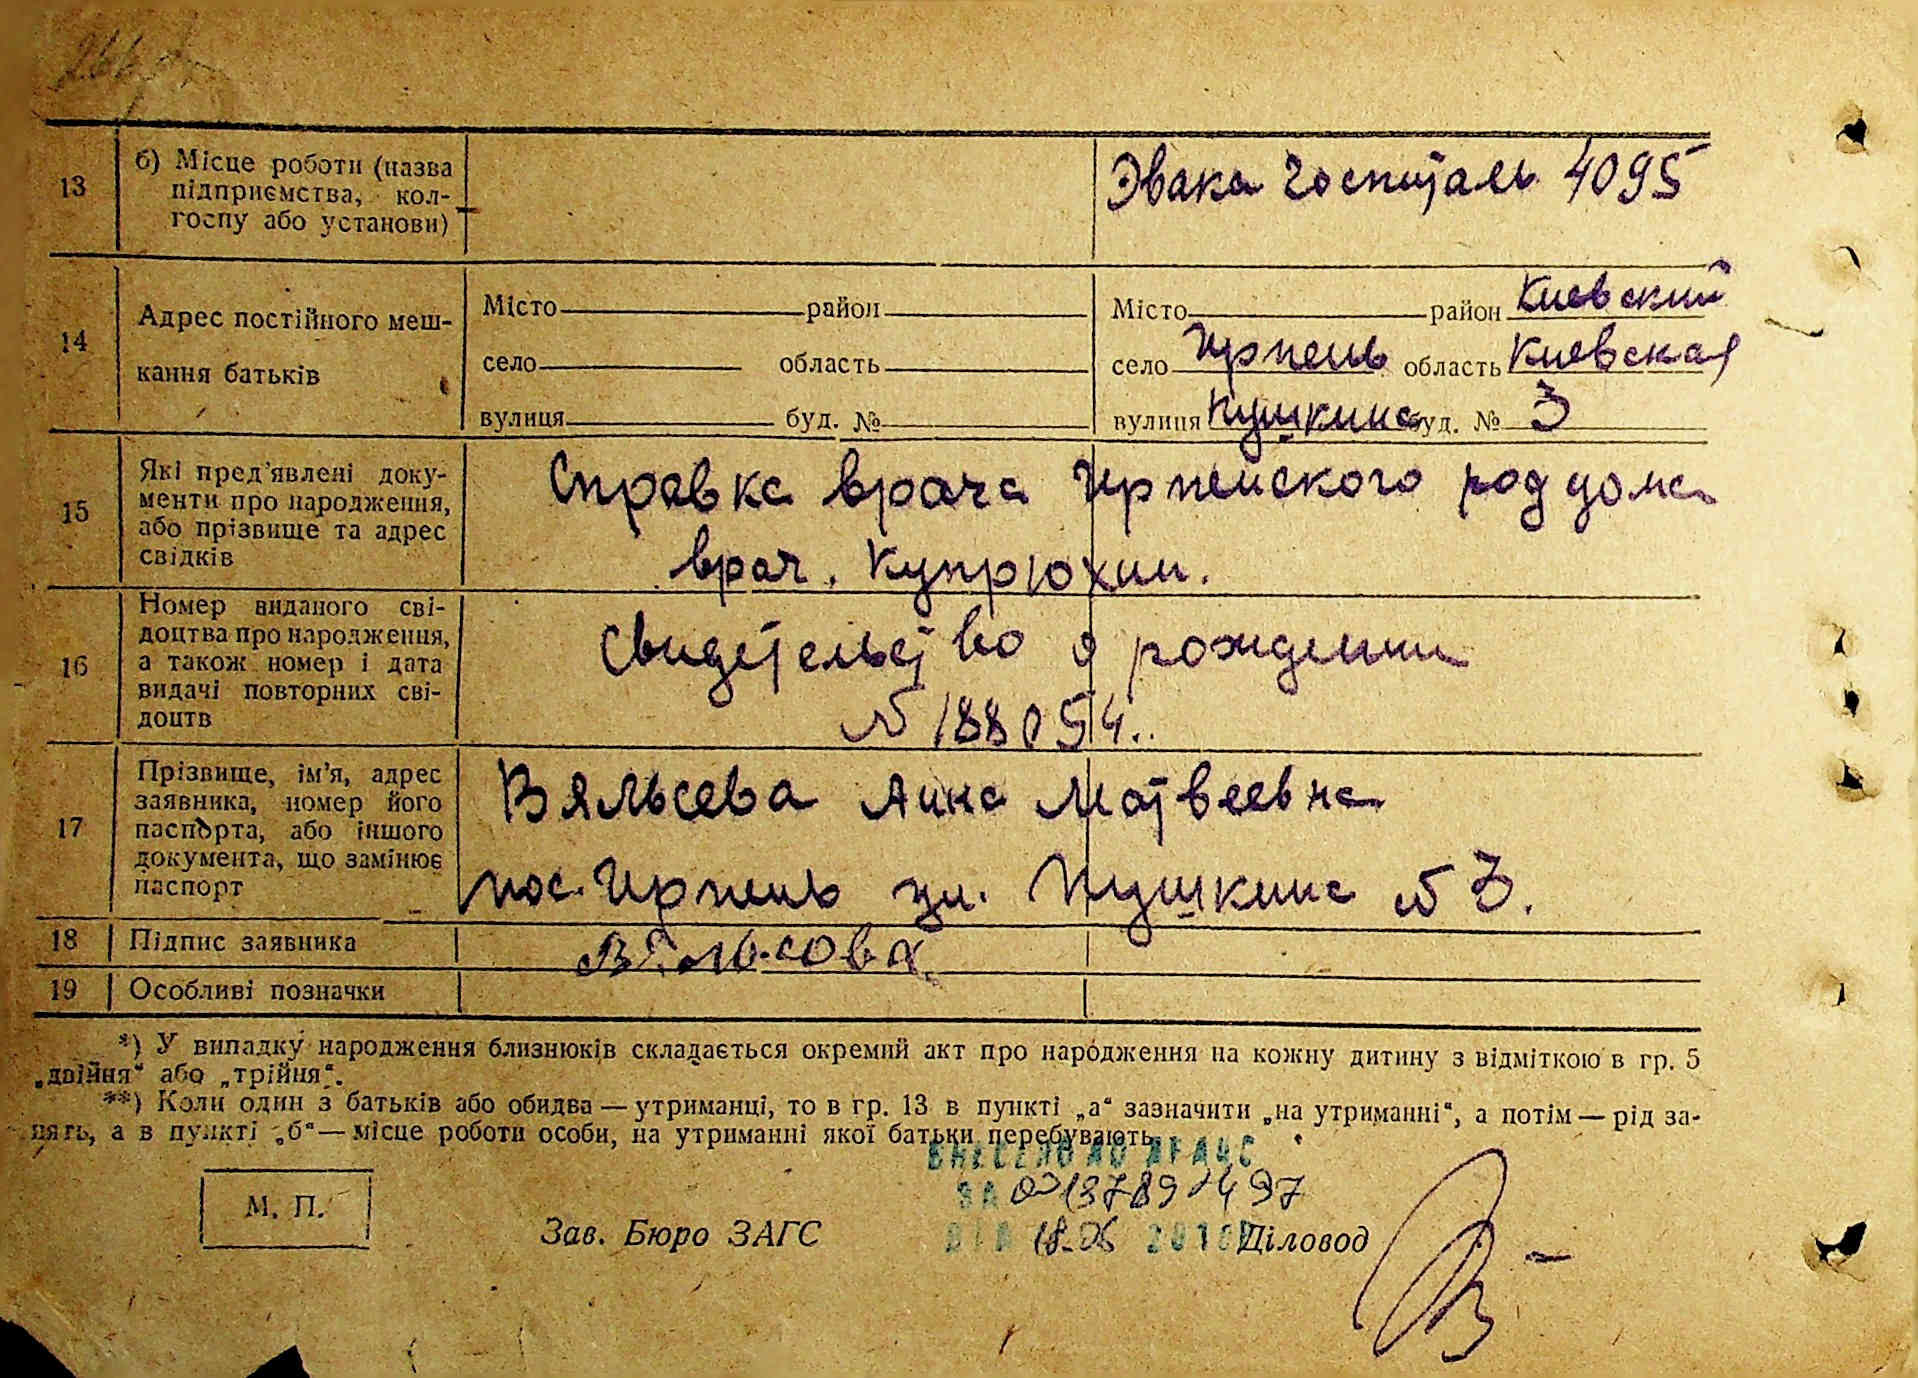 13 б) Місце роботи (назва підприємства, колгоспу або установи) Эвака Госпиталь 4095
14 Адрес постійного мешкання батьків
Місто район Місто район Киевский
село область село Ирпень область Киевская
вулиця буд. № вулиця Пушкина буд. № 3
15 Які пред'явлені документи про народження, або прізвище та адрес свідків
Справка врача Ирпенского роддома
врач. Купрюхин.
16 Номер виданого свідоцтва про народження, а також номер і дата видачі повторних свідоцтв
Свидетельство о рождении
№ 188054.
17 Прізвище, ім'я, адрес заявника, номер його паспорта, або іншого документа, що замінює паспорт
Вяльсева Анна Матвеевна
пос. Ирпень ул. Пушкина № 3.
18 Підпис заявника
19 Особливі позначки
*) У випадку народження близнюків складається окремий акт про народження на кожну дитину з відміткою в гр. 5
„двійня“ або „трійня“.
**) Коли один з батьків або обидва — утриманці, то в гр. 13 в пункті „а“ зазначити „на утриманні“, а потім — рід за-
нять, а в пункті „б“ — місце роботи особи, на утриманні якої батьки перебувають.
ВНЕСЕНО ДО ДРАЦС
ЗА
М. П.
Зав. Бюро ЗАГС
ВІД 18.06 Діловод